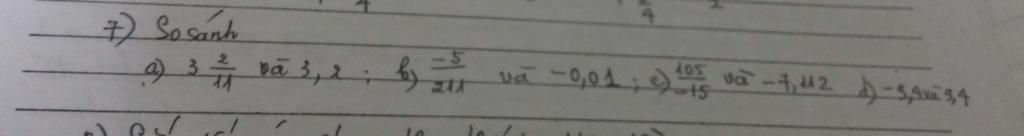 7) So sánh
a) 3 2/11 và 3,2 ; b) -5/211 và -0,01 ; c) 105/-15 và -7,112 d) -3,4 và 3,4